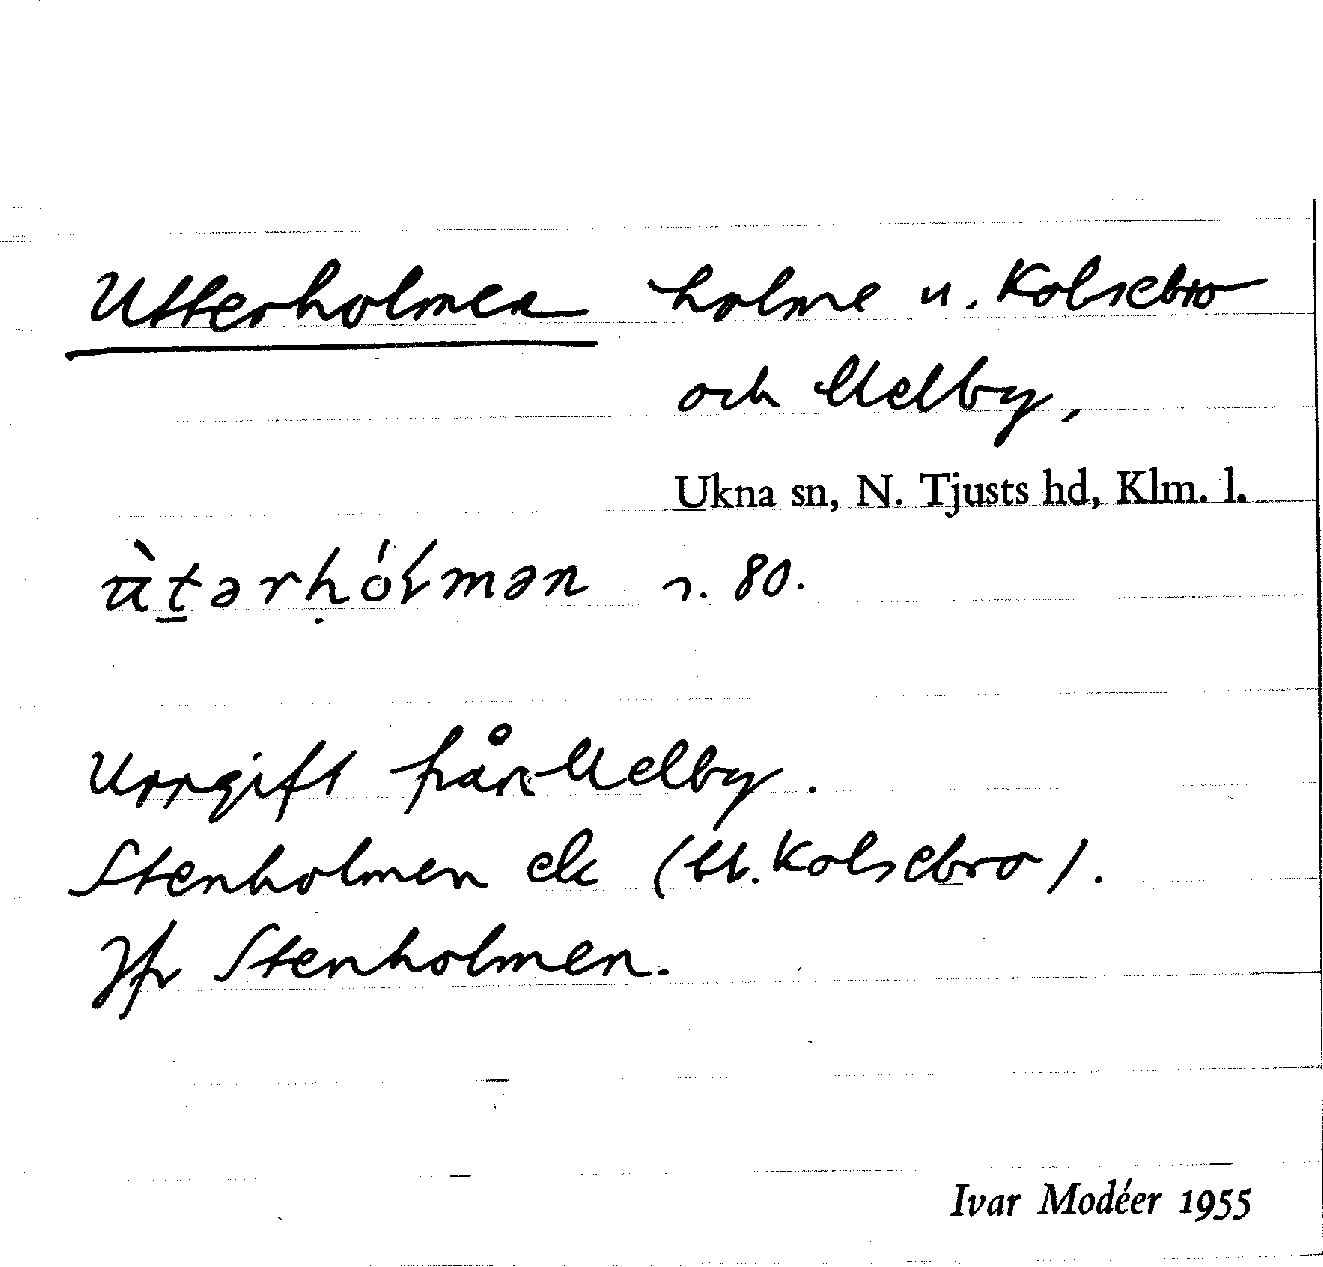 Utterholmen holme u. Kolsebro
och Melby,
Ukna sn, N. Tjusts hd, Klm. l.
ùt̠ərḥólmən s. 80.
Uppgift från Melby.
Stenholmen ek ( Kolsebro).
Jfr Stenholmen.
Ivar Modéer 1955